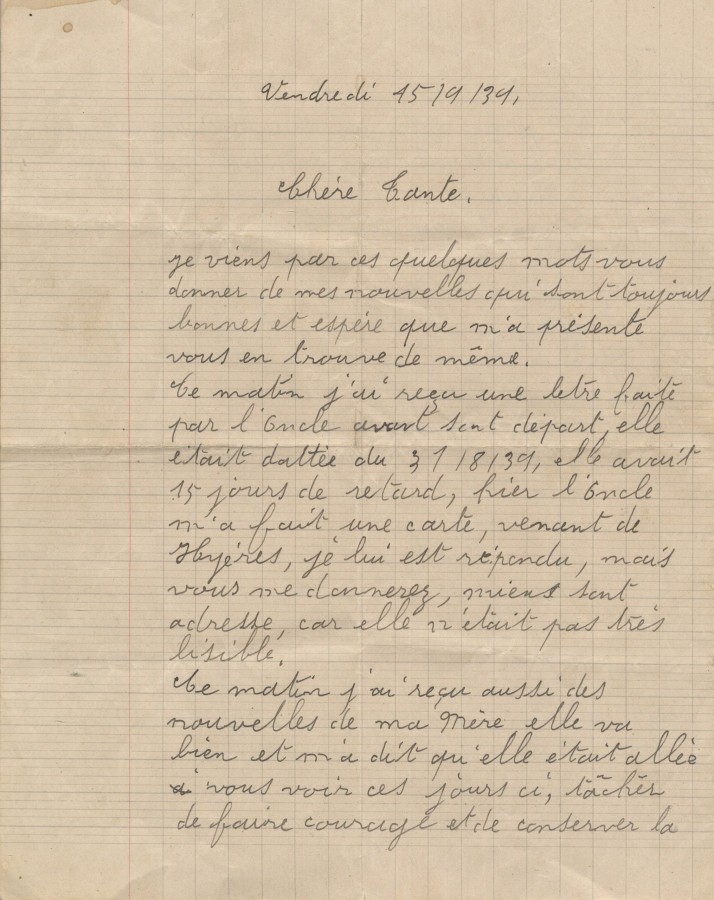 Vendredi 15/9/39.
Chère Tante.
je viens par ces quelques mots vous
donner de mes nouvelles qui sont toujours
bonnes et espére que m'a présente
vous en trouve de même.
Ce matin j'ai reçu une letre faite
par l'Oncle avant sont départ, elle
était dattée du 31/8/39, elle avait
15 jours de retard, hier l'Oncle
m'a fait une carte, venant de
Hyéres, je lui est répondu, mais
vous me donnerez, miens sont
adresse, car elle n'était pas très
lisible.
Ce matin j'ai reçu aussi des
nouvelles de ma Mère elle va
bien et m'a dit qu'elle était allée
a vous voir ces jours ci, tâchér
de faire courage et de conserver la